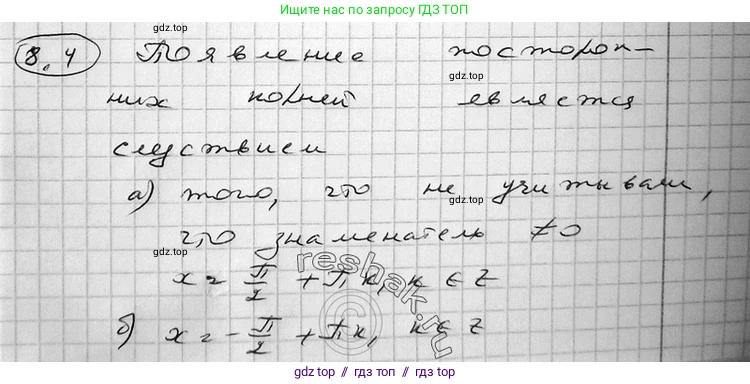 Ищите нас по запросу ГДЗ ТОП
gdz.top
8.4 Появление посторон-
gdz.top
них корней является
следствием
gdz.top
а) того, что не учитывали,
gdz.top
что знаменатель ≠0
gdz.top
x = π/2 + πk, k ∈ Z
reshak.ru
©
б) x = -π/2 + πk, k ∈ Z
gdz.top // gdz.top // gdz.top